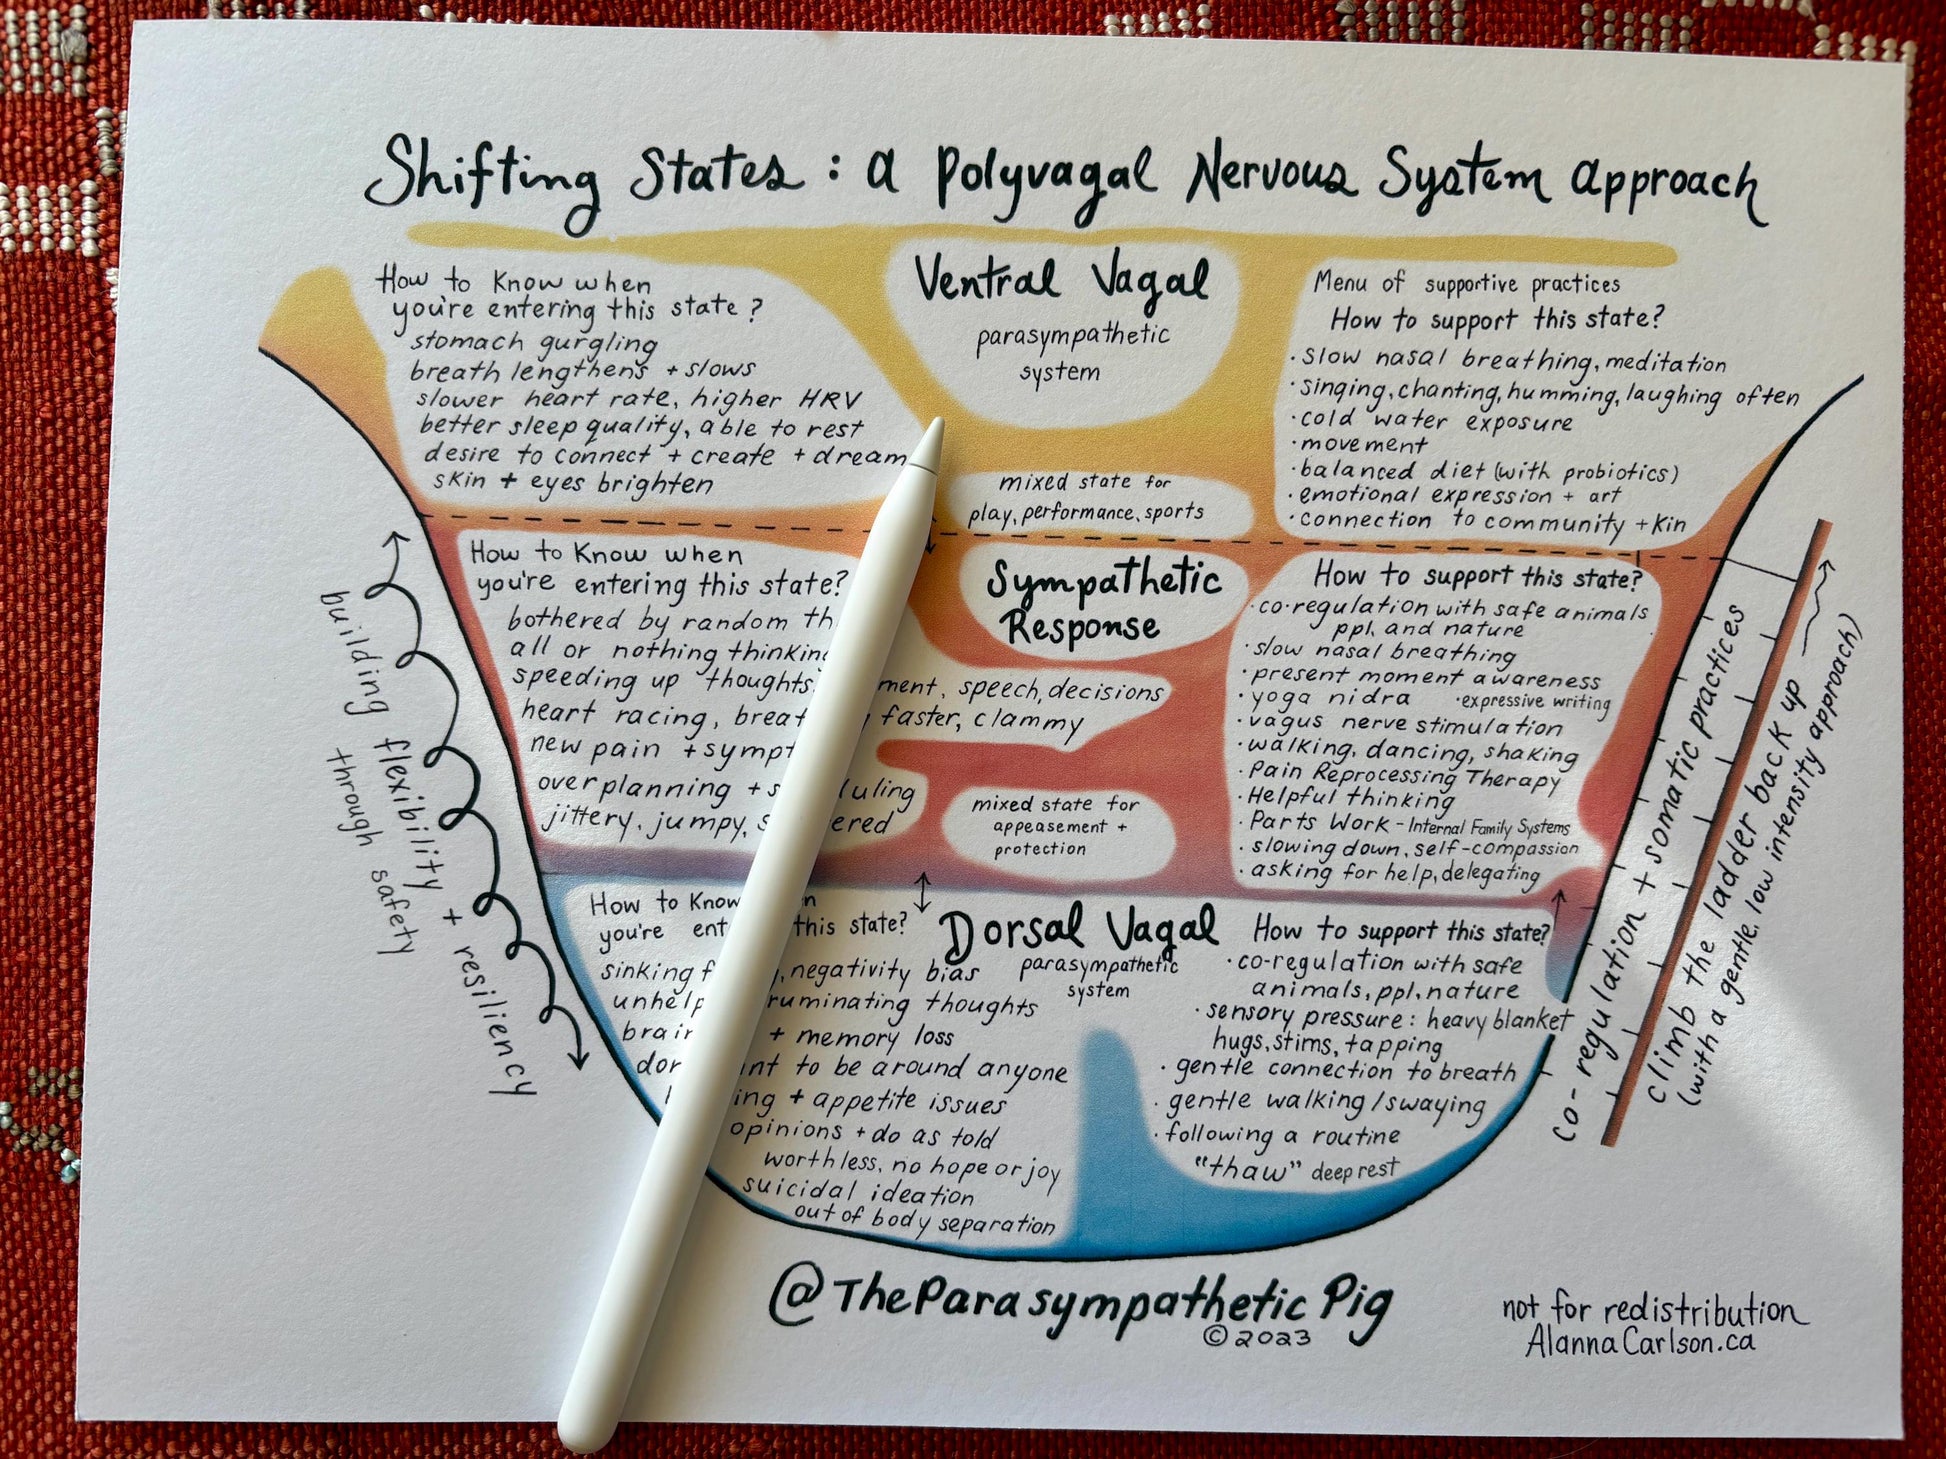 Shifting States : a Polyvagal Nervous System Approach
How to Know when
you're entering this state?
stomach gurgling
breath lengthens + slows
slower heart rate, higher HRV
better sleep quality, able to rest
desire to connect + create + dream
skin + eyes brighten
Ventral Vagal
parasympathetic
system
mixed state for
play, performance, sports
Menu of supportive practices
How to support this state?
· slow nasal breathing, meditation
· singing, chanting, humming, laughing often
· cold water exposure
· movement
· balanced diet (with probiotics)
· emotional expression + art
· connection to community + kin
How to Know when
you're entering this state?
bothered by random
all or nothing
speeding up thoughts, speech, decisions
heart racing, faster, clammy
new pain +
overplanning +
jittery, jumpy,
Sympathetic
Response
mixed state for
appeasement +
protection
How to support this state?
· co-regulation with safe animals
ppl. and nature
· slow nasal breathing
· present moment awareness
· yoga nidra · expressive writing
· vagus nerve stimulation
· walking, dancing, shaking
· Pain Reprocessing Therapy
· Helpful thinking
· Parts Work - Internal Family Systems
· slowing down, self-compassion
· asking for help, delegating
How to Know
you're this state?
sinking , negativity bias
ruminating thoughts
+ memory loss
to be around anyone
+ appetite issues
opinions + do as told
worthless, no hope or joy
suicidal ideation
out of body separation
Dorsal Vagal
parasympathetic
system
How to support this state?
· co-regulation with safe
animals, ppl, nature
· sensory pressure: heavy blanket
hugs, stims, tapping
· gentle connection to breath
· gentle walking/swaying
· following a routine
"thaw" deep rest
building flexibility + resiliency
through safety
co-regulation + somatic practices
climb the ladder back up
(with a gentle, low intensity approach)
@TheParasympatheticPig
©2023
not for redistribution
AlannaCarlson.ca